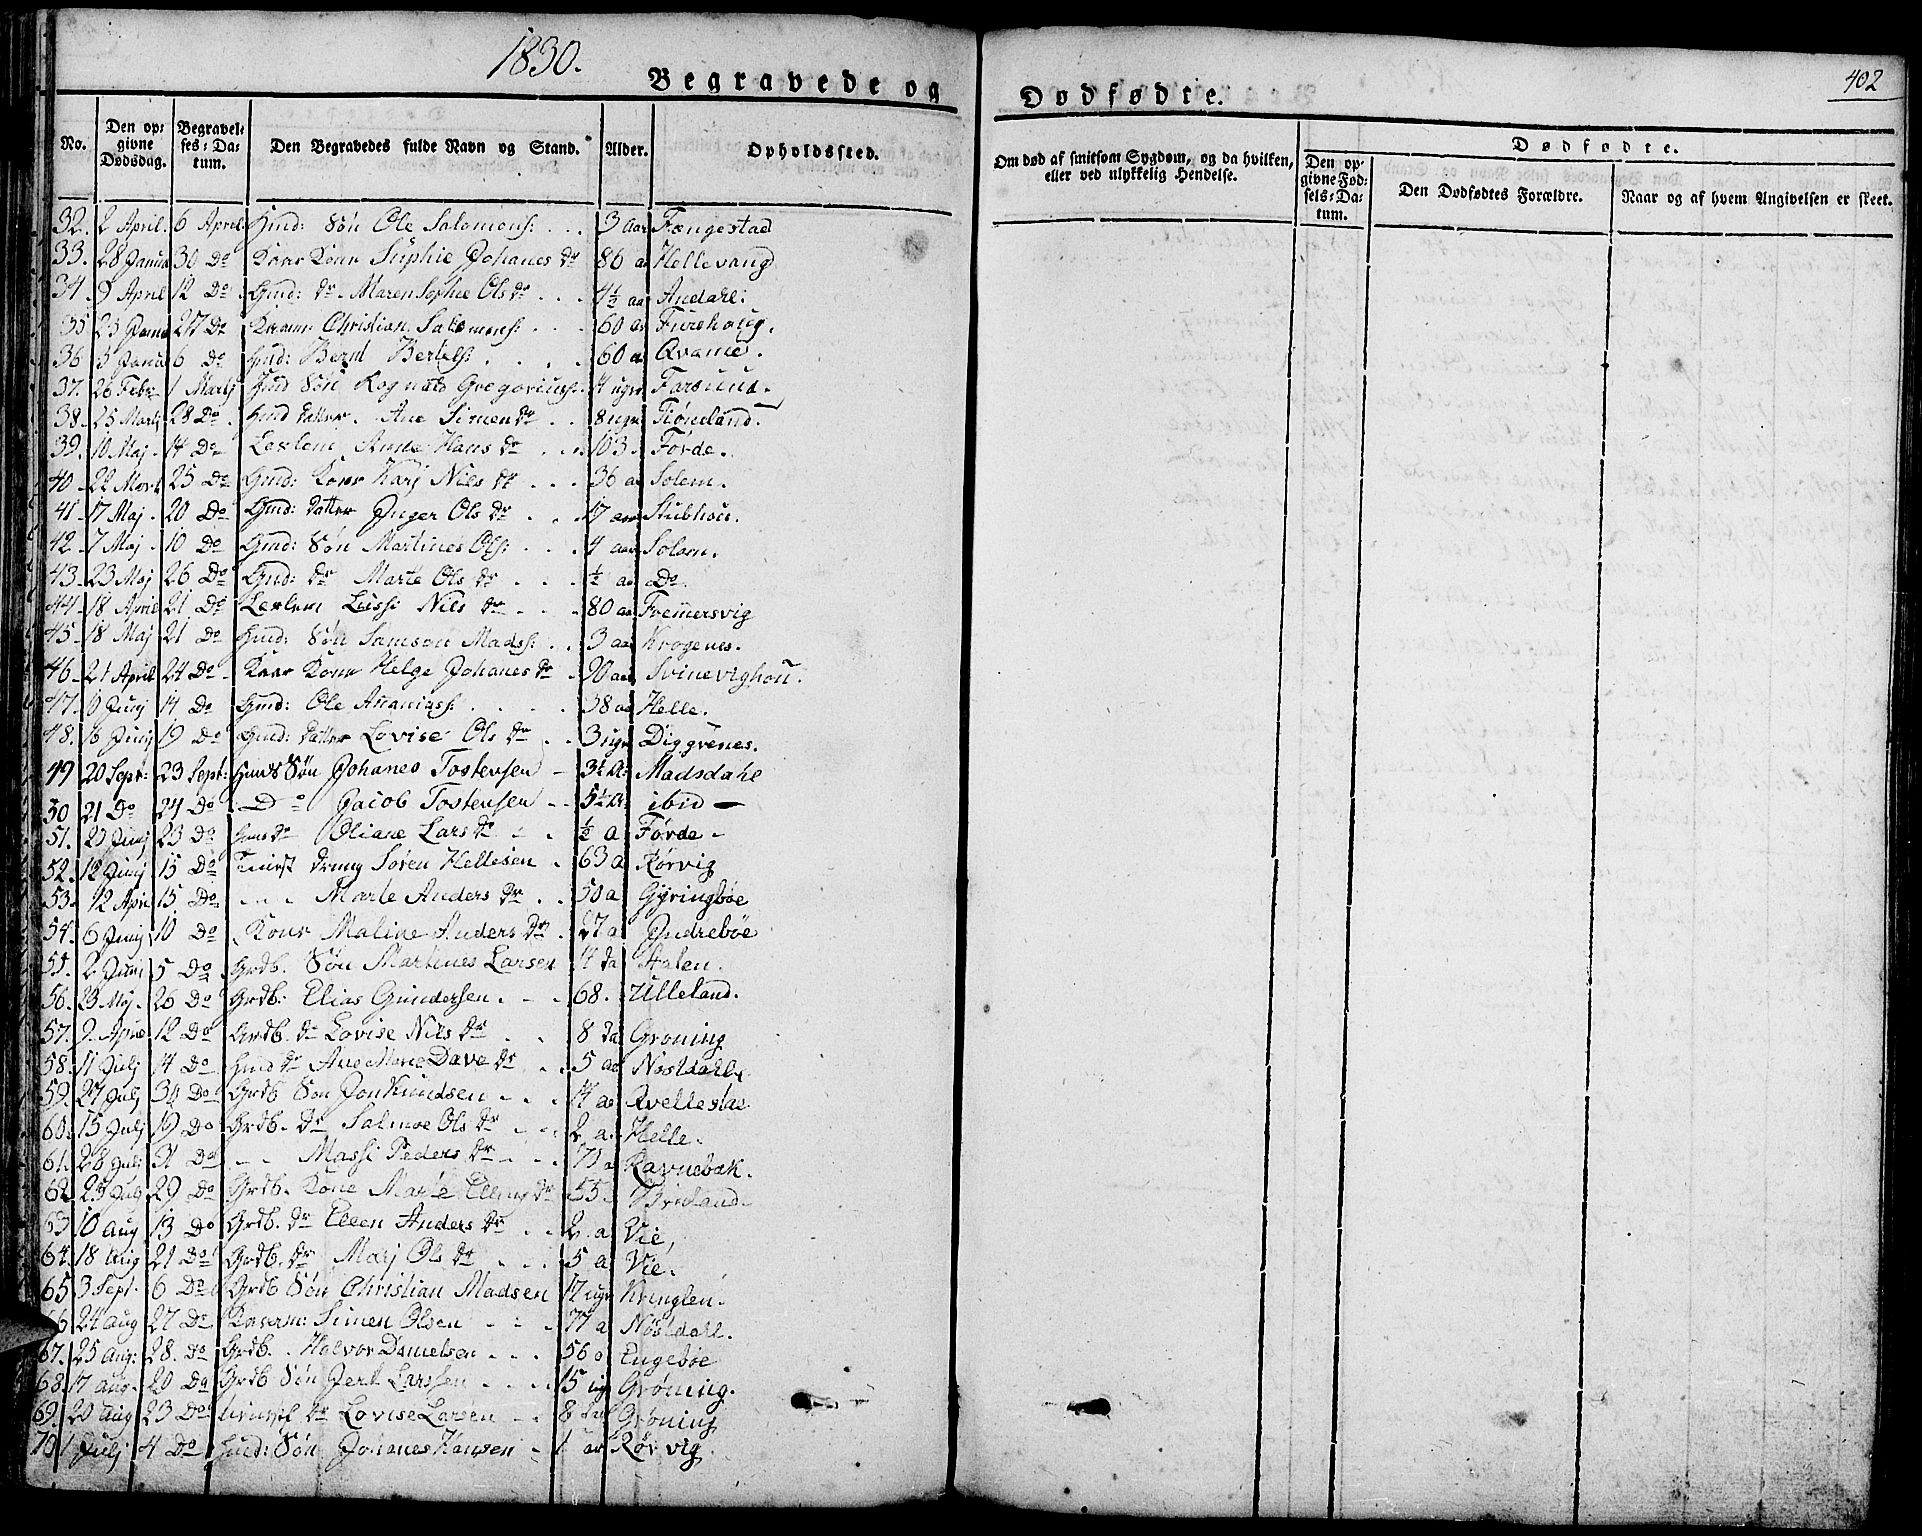 1830.
Begravede og
Dødfødte.
402
No.
Den opgivne Dødsdag.
Begravelses-Datum.
Den Begravedes fulde Navn og Stand.
Alder.
Opholdssted.
Om død af smitsom Sygdom, og da hvilken, eller ved ulykkelig Hendelse.
Dødfødte.
Den opgivne Fødsels-Datum.
Den Dødfødtes Forældre.
Naar og af hvem Angivelsen er skeet.
32. 2 April. 6 April Hmd: Søn Ole Salomons: 3 aar Fængestad
33. 28 Janua 30 Do Kaar Kone Sophie Johanes Dr 86 a Hellevang
34. 9 April 12 Do Hmd: Dr. Maren Sophie Ols Dr 4½ aa Andahl:
35 23 Janu 27 Do Kaarm Christian Salomons: 60 a Furehoug.
36 3 Janu 6 Do Hmd: Bernt Bertels: 60 a Qvame.
37. 26 Febr 1 Martj Hmd Søn Rognald Gregorius: 4 uger Farsund.
38. 25 Martj 28 Do. Hmd Datter. Ane Simen Dr 8 uger Tiømland.
39. 10 Maj. 14 Do Lexlem Anne Hans Dr 103. Førde.
40. 22 Mart 25 Do Hmd: Kone Karj Niels Dr 36 a Solem.
41. 17 Maj. 20 Do Hmd: Datter Inger Ols Dr 17 aar Stubhou.
42. 7 Maj. 10 Do Hmd: Søn Martines Ols: 4 aar Solem.
43. 23 Maj 26 Do Hmd: Dr Marte Ols Dr ½ aa Do.
44. 18 April 21 Do Lexlem Lussi Niels Dr 80 aa Fremersvig
45. 18 Maj 21 Do Hmd: Søn Samson Mads: 3 aar Krogenes.
46. 21 April 24 Do Kaar Kone Helge Johanes Dr 90 aa Svinevighou.
47. 10 Junj 14 Do Hmd: Ole Ananias: 38 aa Helle.
48. 16 Junj 19 Do Hmd: Datter Lovise Ols Dr 3 uger Diggrenes.
49 20 Sept: 23 Sept: Hmds Søn Johanes Tostensen 3½ A: Madsdahl
50 21 Do 24 Do Do Jacob Tostensen 5½ A: ibid
51. 20 Junj 23 Do Hmds Dr Oliane Lars Dr ½ a Førde
52. 12 Junj 15 Do Tienest Dreng Søren Hellesen 63 a Rørvig
53. 12 April 15 Do Marte Anders Dr 50 a Gyringbøe
54. 6 Junj 10 Do Kone Maline Anders Dr 27 a Indrebøe
55. 2 Juni 5 Do Grdb. Søn Martines Larsen 14 da Stalen.
56. 23 Maj. 26 Do Grdb: Elias Gundersen. 68. Ulleland.
57. 9. April 12 Do Grdb. Dr Lovise Niels Dr 8 da Grøning
58. 11 Julj 14 Do Hmd Dr Ane Marie Dave Dr 5 aa Nøstdahl
59. 27 Julj 30 Do Grdb Søn Jon Knudsen 14 a Qvellestad
60. 15 Julj 19 Do Grdb. Dr Salmoe Ols Dr 2 a. Helle.
61. 28 Julj 31 Do Massi Peders Dr 71 a Ravnebak.
62 25 Julj 29 Do Grdb. Kone Marte Ellings Dr 55.
63 10 Aug 13 Do Grdb. Dr Ellen Anders Dr 2. a Vie,
64. 18 Aug 21 Do Grdb. Dr Marj Ols Dr 5 a Vie.
65 3 Sept. 6 Do Grdb Søn Christian Madsen 17 uger Kringlen.
66 24 Aug 27 Do Kaarm: Simen Olsen 77 a Nøstdahl.
67. 25 Aug: 28. Do Grdb. Halvor Danielsen 56 a Engebøe
68. 17 Aug. 20 Do Grdb Søn Jert Larssen 15 ug Grøning.
69. 20 Aug 23 Do Dr Lovise Larsen 8 Grøning
70 1 Julj 4 Do Hmd: Søn Johanes Hansen 1 aar Rørvig.